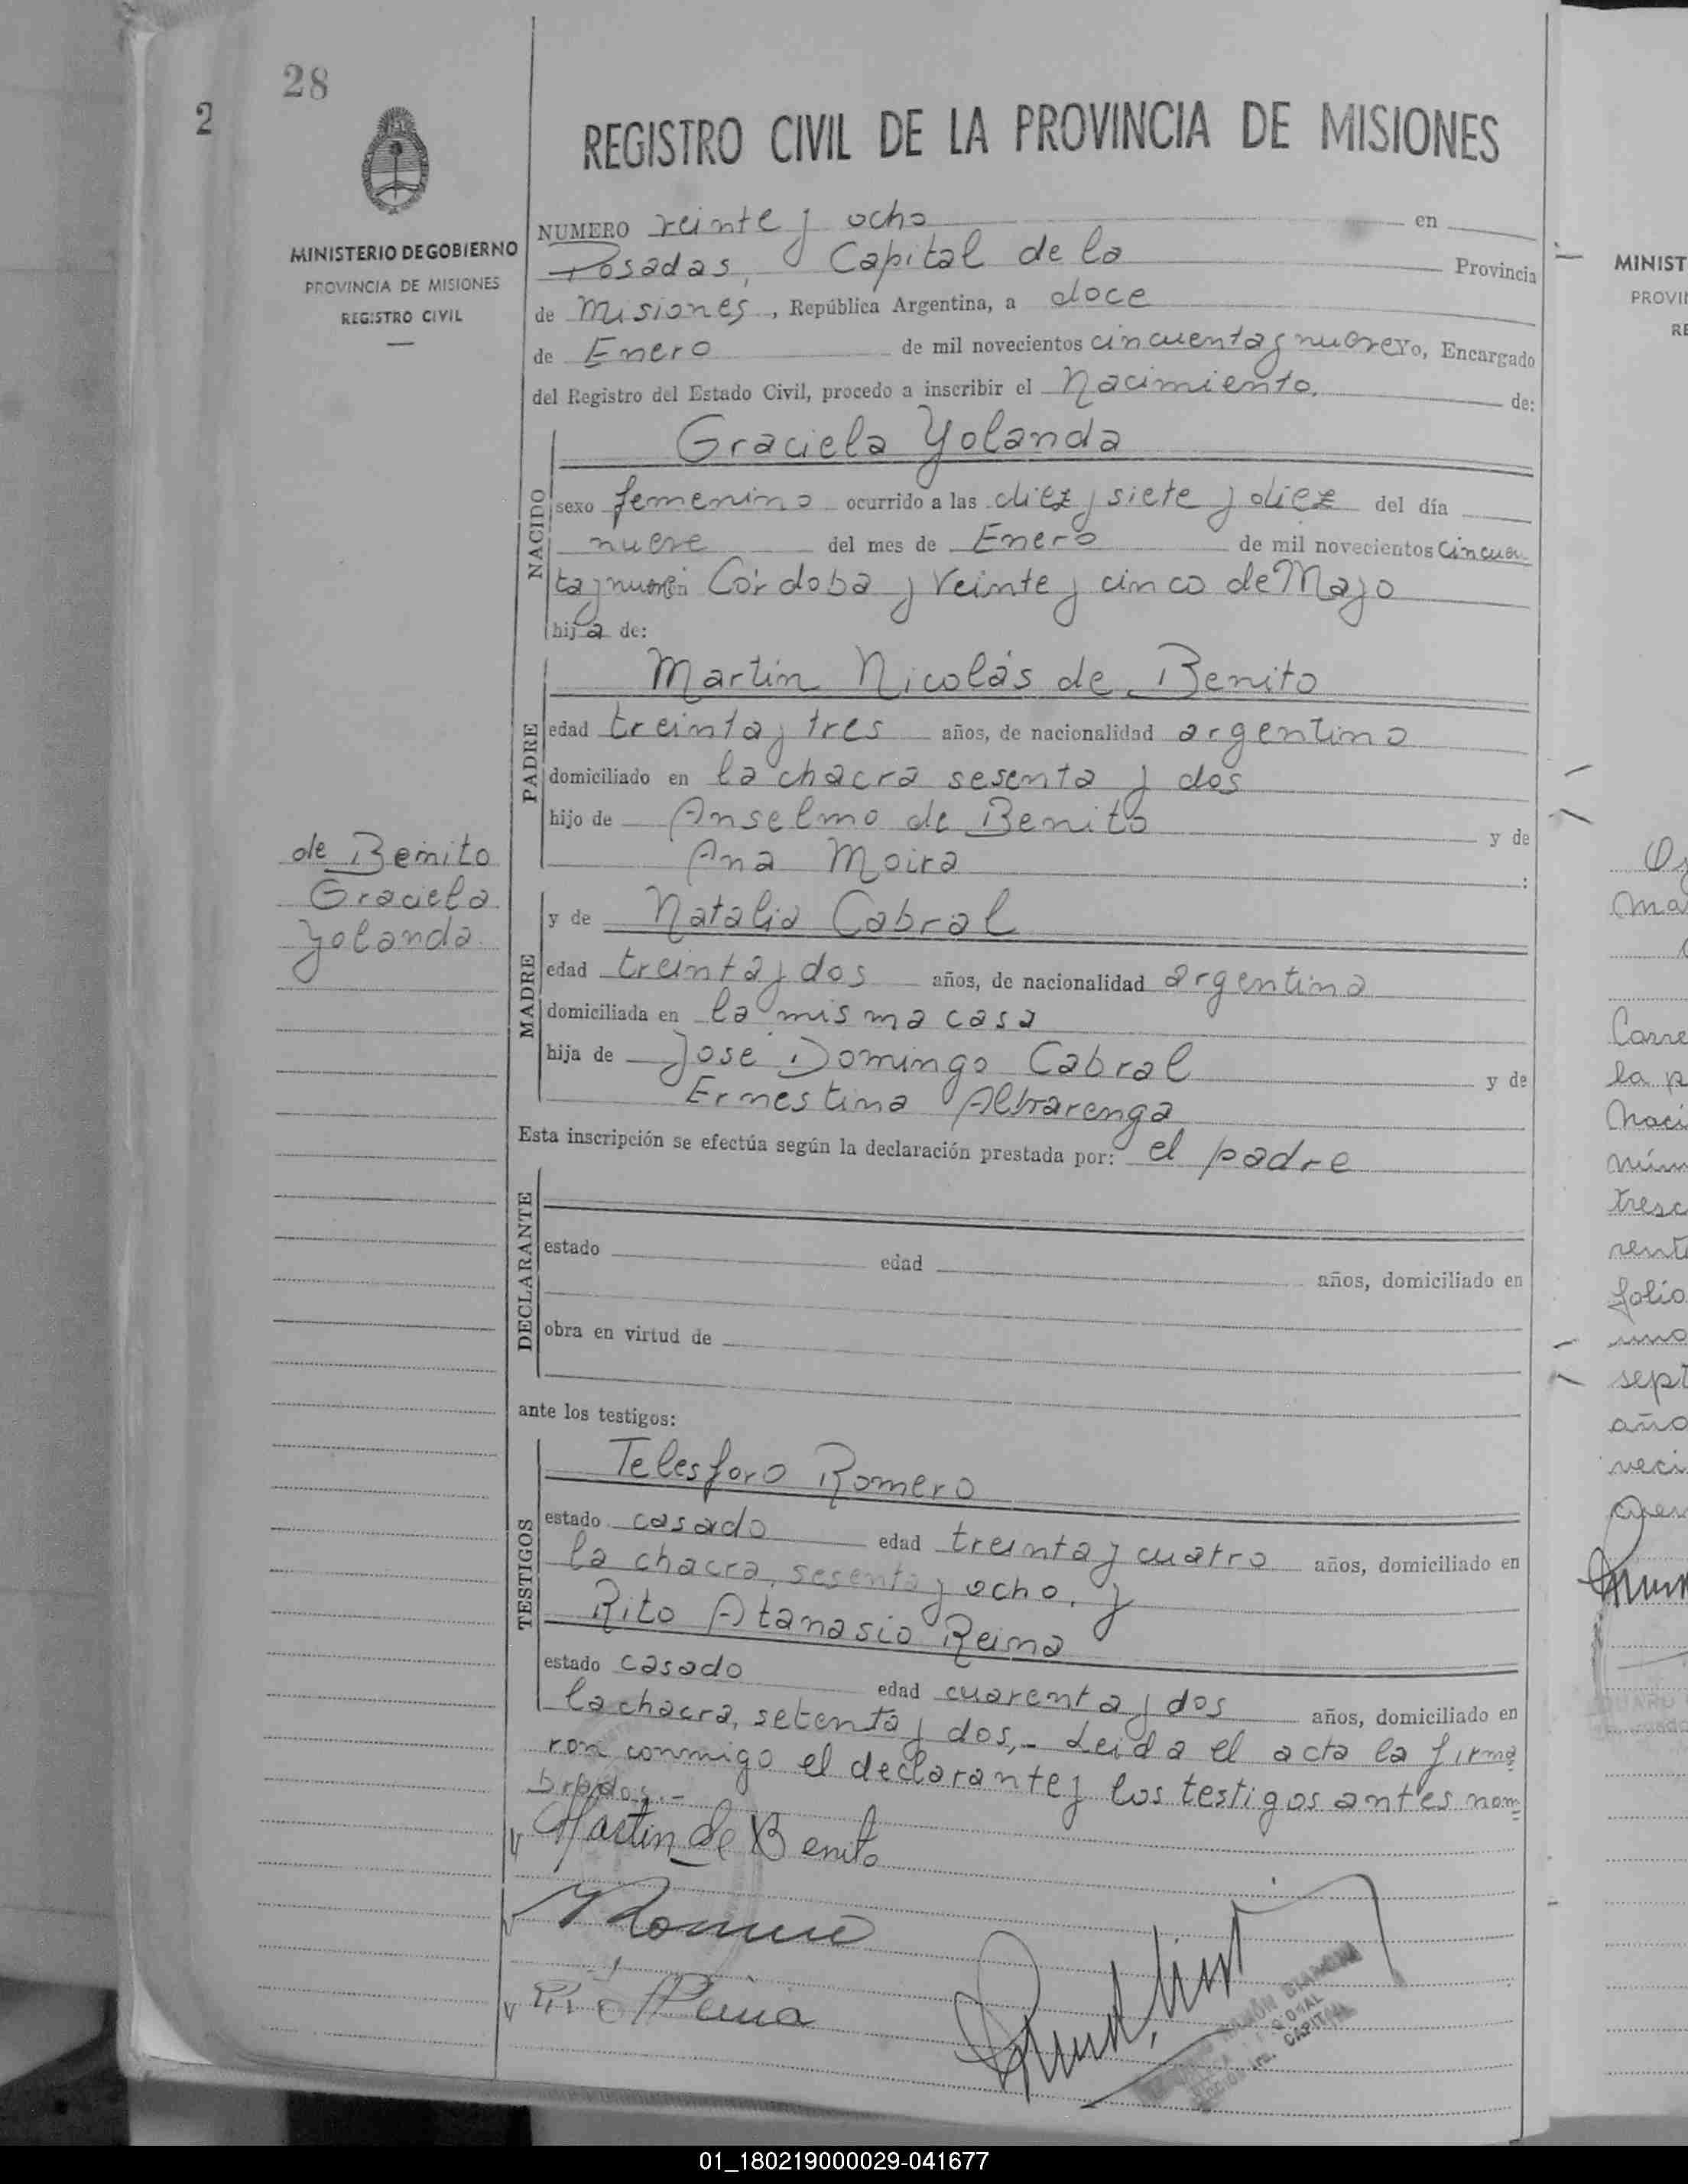 28
2
REGISTRO CIVIL DE LA PROVINCIA DE MISIONES
MINISTERIO DE GOBIERNO
PROVINCIA DE MISIONES
REGISTRO CIVIL
NUMERO veinte y ocho en
Posadas, Capital de la Provincia
de Misiones, República Argentina, a doce
de Enero de mil novecientos cincuenta y nueve yo, Encargado
del Registro del Estado Civil, procedo a inscribir el Nacimiento, de:
NACIDO
Graciela Yolanda
sexo femenino ocurrido a las diez y siete y diez del día
nueve del mes de Enero de mil novecientos cincuen
ta y nueve Córdoba y Veinte y cinco de Mayo
hija de:
PADRE
Martin Nicolás de Benito
edad treinta y tres años, de nacionalidad argentino
domiciliado en la chacra sesenta y dos
hijo de Anselmo de Benito y de
Ana Moira :
de Benito
Graciela
Yolanda.
MADRE
y de Natalia Cabral
edad treinta y dos años, de nacionalidad argentina
domiciliada en la misma casa
hija de José Domingo Cabral y de
Ernestina Albarenga
Esta inscripción se efectúa según la declaración prestada por: el padre
DECLARANTE
estado edad años, domiciliado en
obra en virtud de
ante los testigos:
TESTIGOS
Telesforo Romero
estado casado edad treinta y cuatro años, domiciliado en
la chacra, sesenta y ocho, y
Rito Atanasio Reina
estado casado edad cuarenta y dos años, domiciliado en
la chacra, setenta y dos,- Leida el acta la firma
ron conmigo el declarante y los testigos antes nom
brados.-
Martin de Benito
Romero
Rito A Reina
CAPITAL
MINIST
PROVI
RE
Carre
la p
naci
tresc
folio
sept
año
veci
01_180219000029-041677